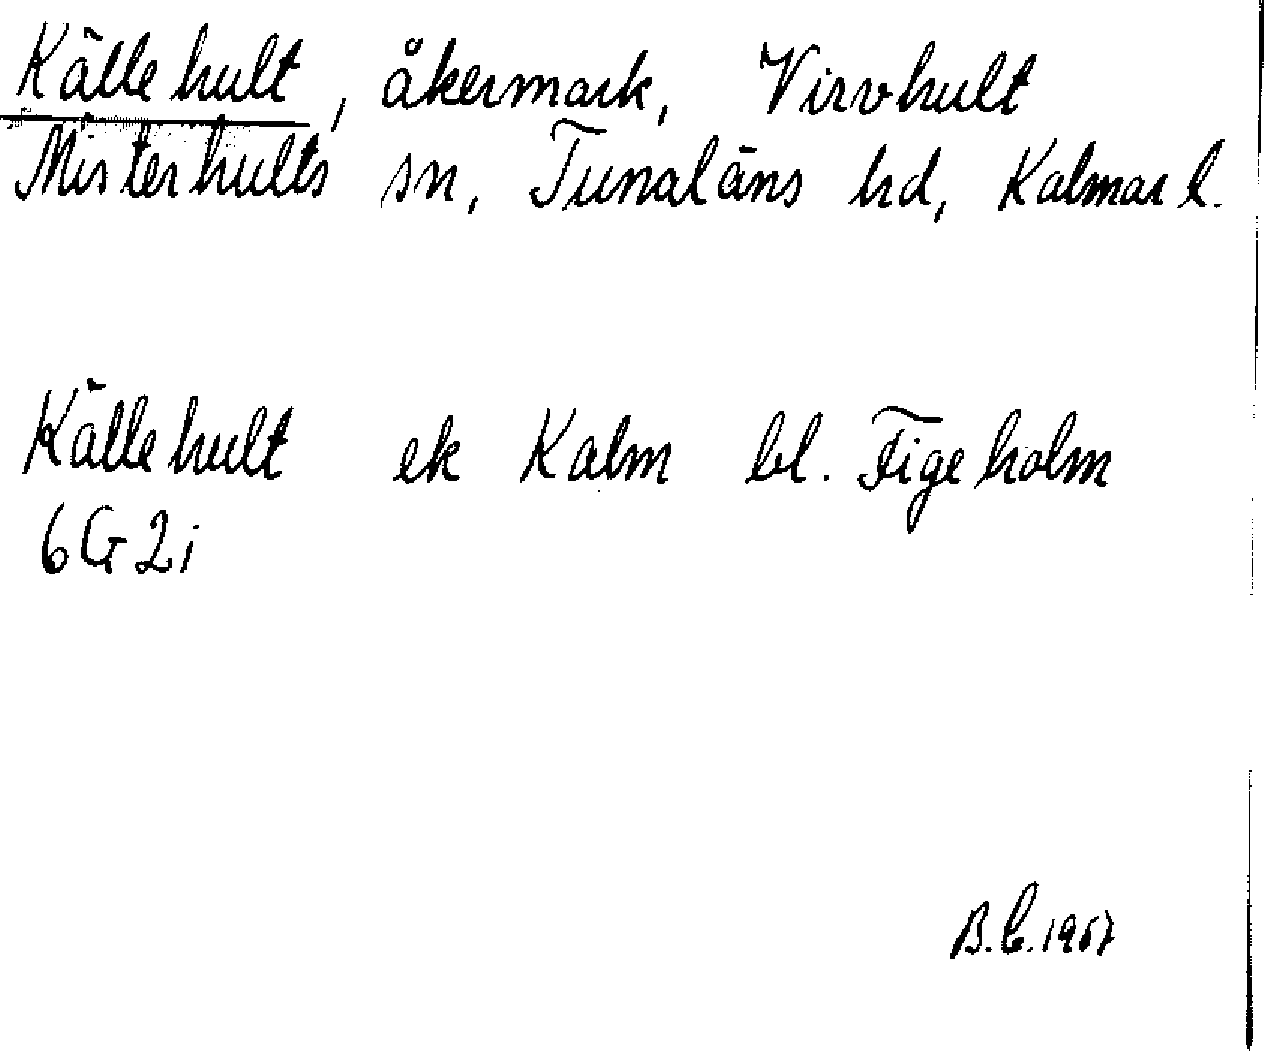 Källehult, åkermark, Virvhult
Misterhults sn, Tunaläns hd, Kalmar l.
Källehult ek Kalm bl. Figeholm
6G2i
B.C. 1967